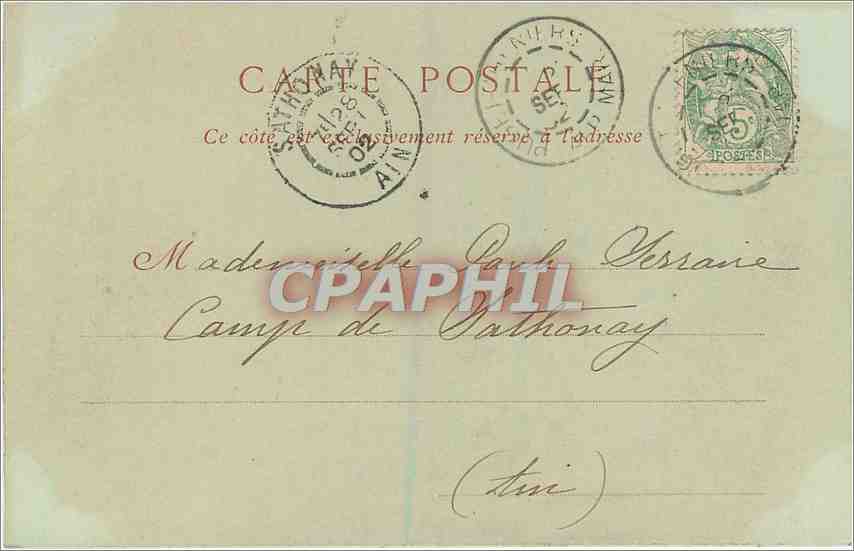 CARTE POSTALE
Ce côté est exclusivement réservé à l'adresse
SATHONAY
28
SEPT
02
AIN
SEPT
02
MAR
5c
POSTES
Mademoiselle Paule Serraire
CPAPHIL
Camp de Sathonay
(Ain)